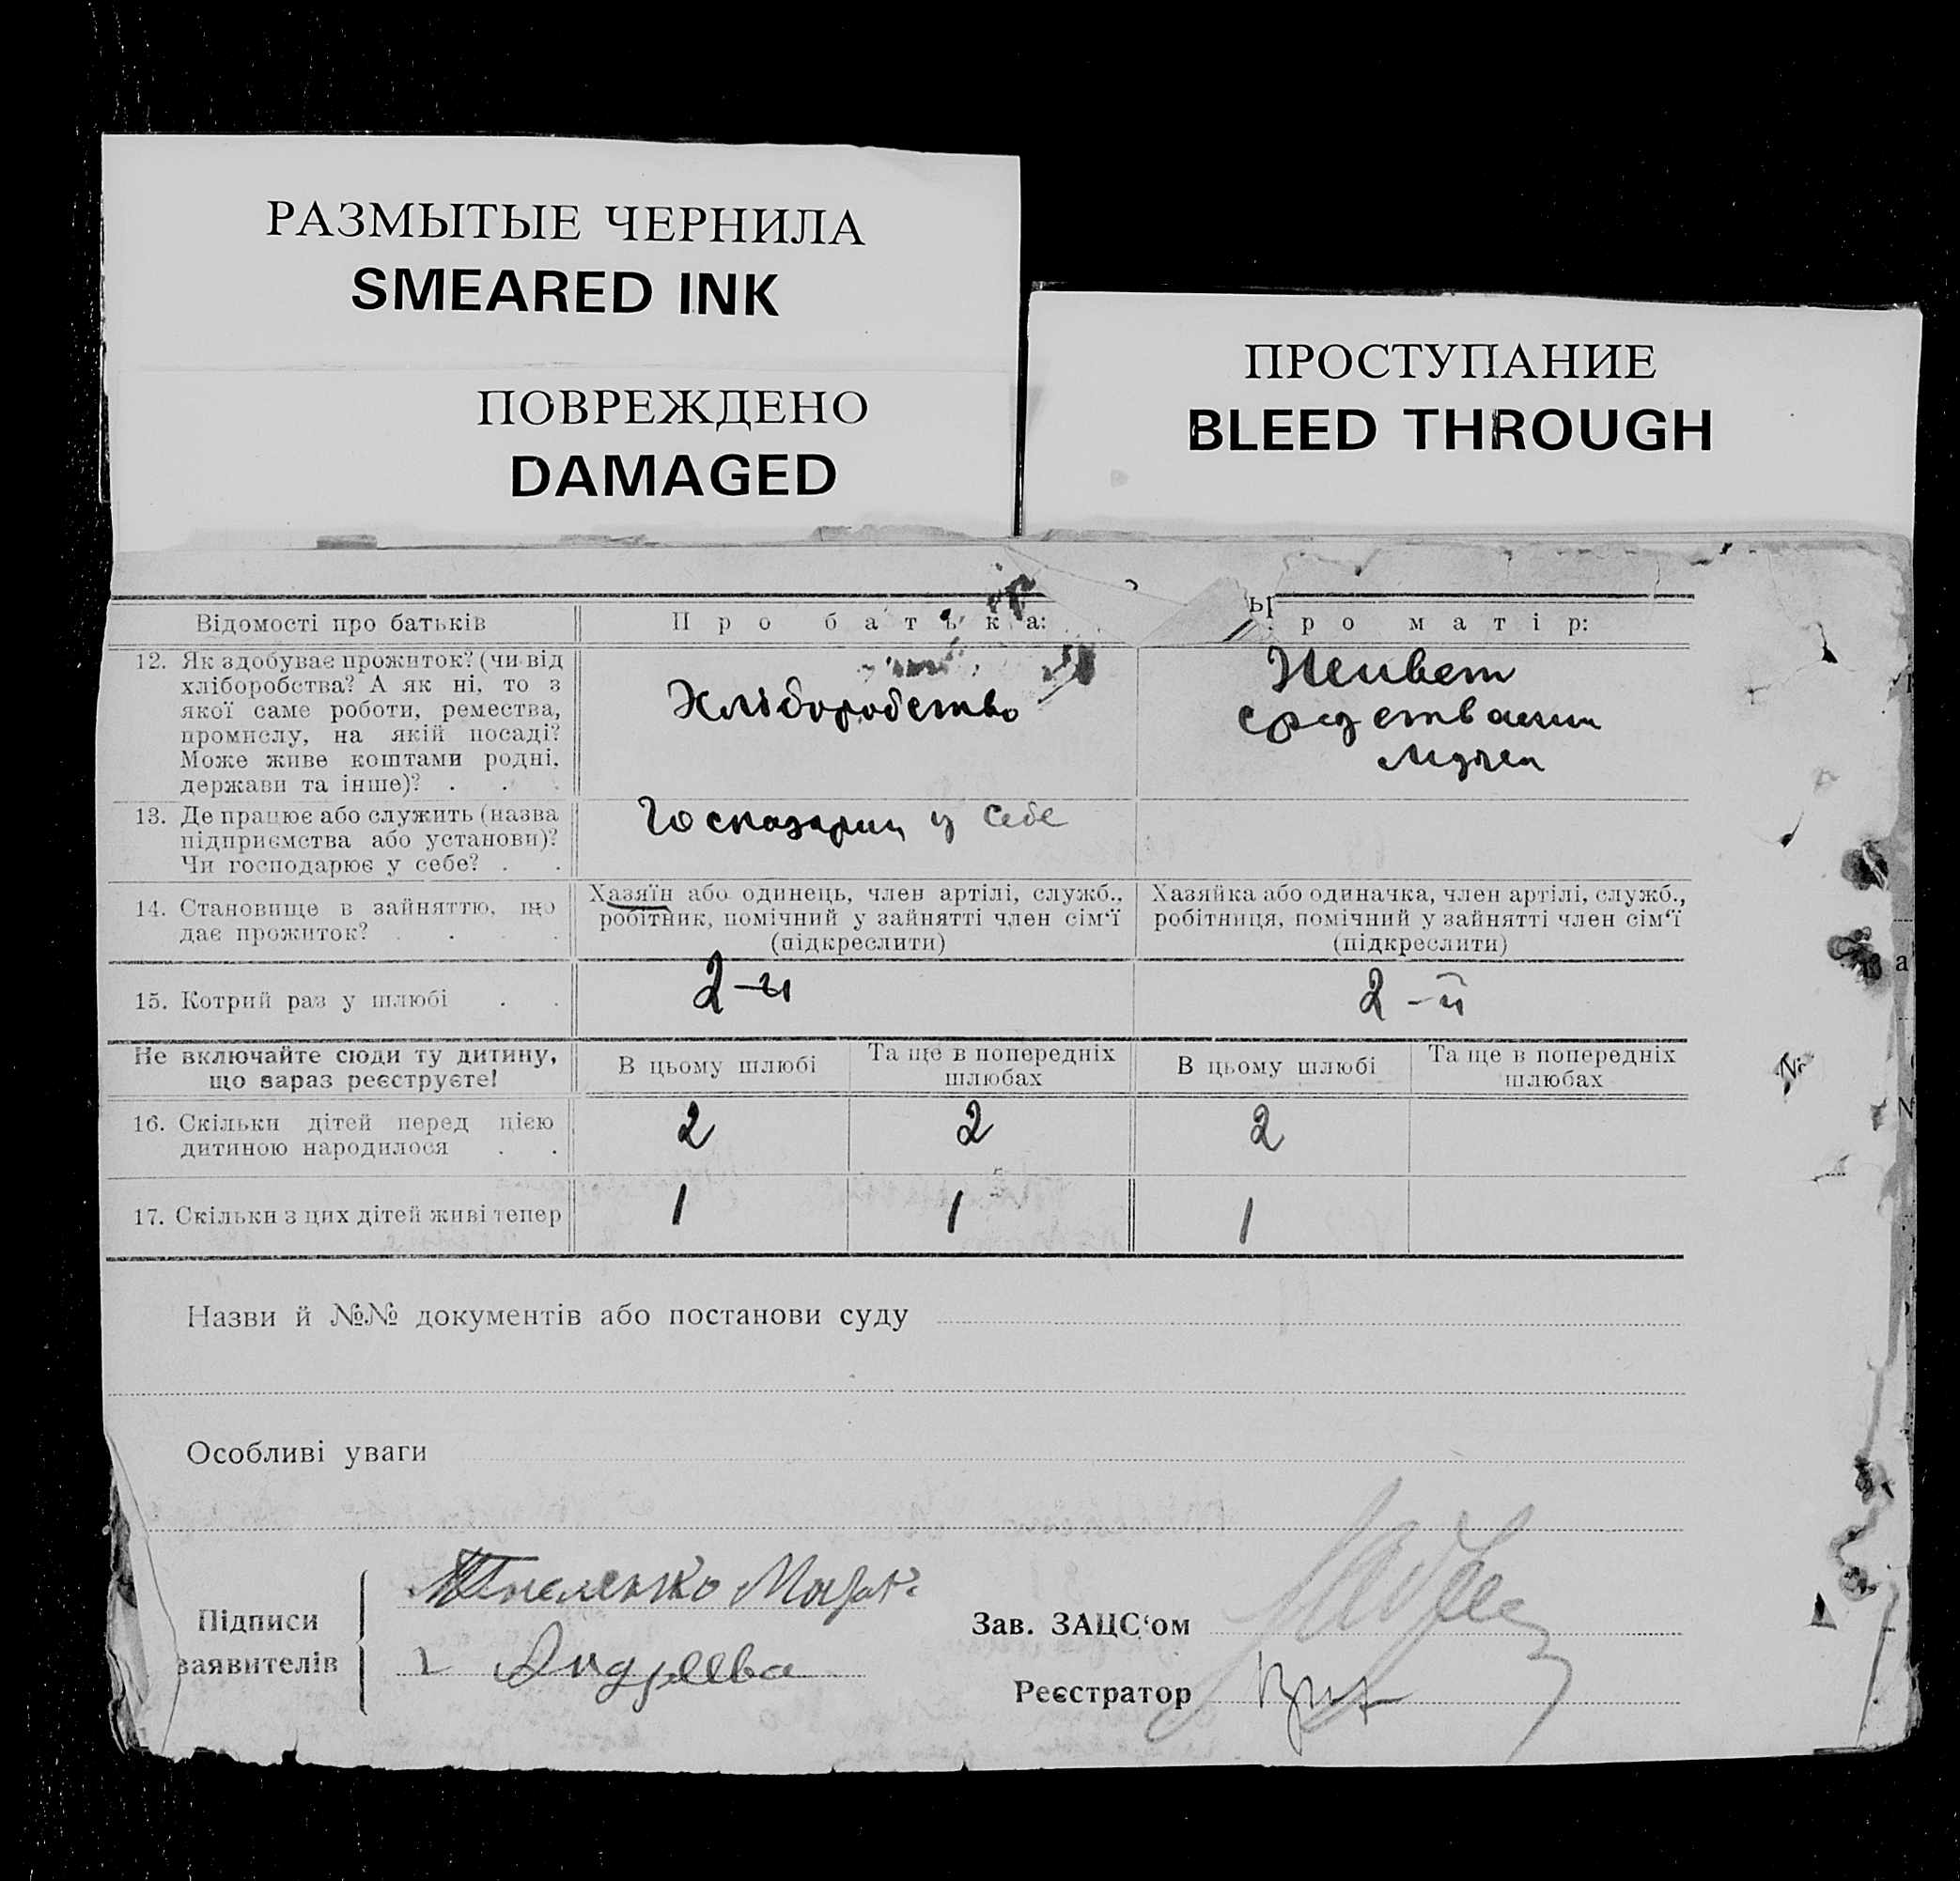 РАЗМЫТЫЕ ЧЕРНИЛА
SMEARED INK
ПОВРЕЖДЕНО
DAMAGED
ПРОСТУПАНИЕ
BLEED THROUGH
Відомості про батьків
Про батька:
ро матір:
12. Як здобуває прожиток? (чи від
хліборобства? А як ні, то з
якої саме роботи, ремества,
промислу, на якій посаді?
Може живе коштами родні,
держави та інше)? . .
Хліборобство
Живет
средствами
мужа
13. Де працює або служить (назва
підприємства або установи)?
Чи господарює у себе? . .
у себе
14. Становище в зайняттю, що
дає прожиток? . . .
Хазяїн або одинець, член артілі, служб.,
робітник, помічний у зайнятті член сім‘ї
(підкреслити)
Хазяйка або одиначка, член артілі, служб.,
робітниця, помічний у зайнятті член сім‘ї
(підкреслити)
15. Котрий раз у шлюбі . .
2-й
2-й
Не включайте сюди ту дитину,
що зараз реєструєте!
В цьому шлюбі
Та ще в попередніх
шлюбах
В цьому шлюбі
Та ще в попередніх
шлюбах
16. Скільки дітей перед цією
дитиною народилося . .
2
2
2
17. Скільки з цих дітей живі тепер
1
1
1
Назви й №№ документів або постанови суду
Особливі уваги
Підписи
заявителів
Андреева
Зав. ЗАЦС‘ом
Реєстратор